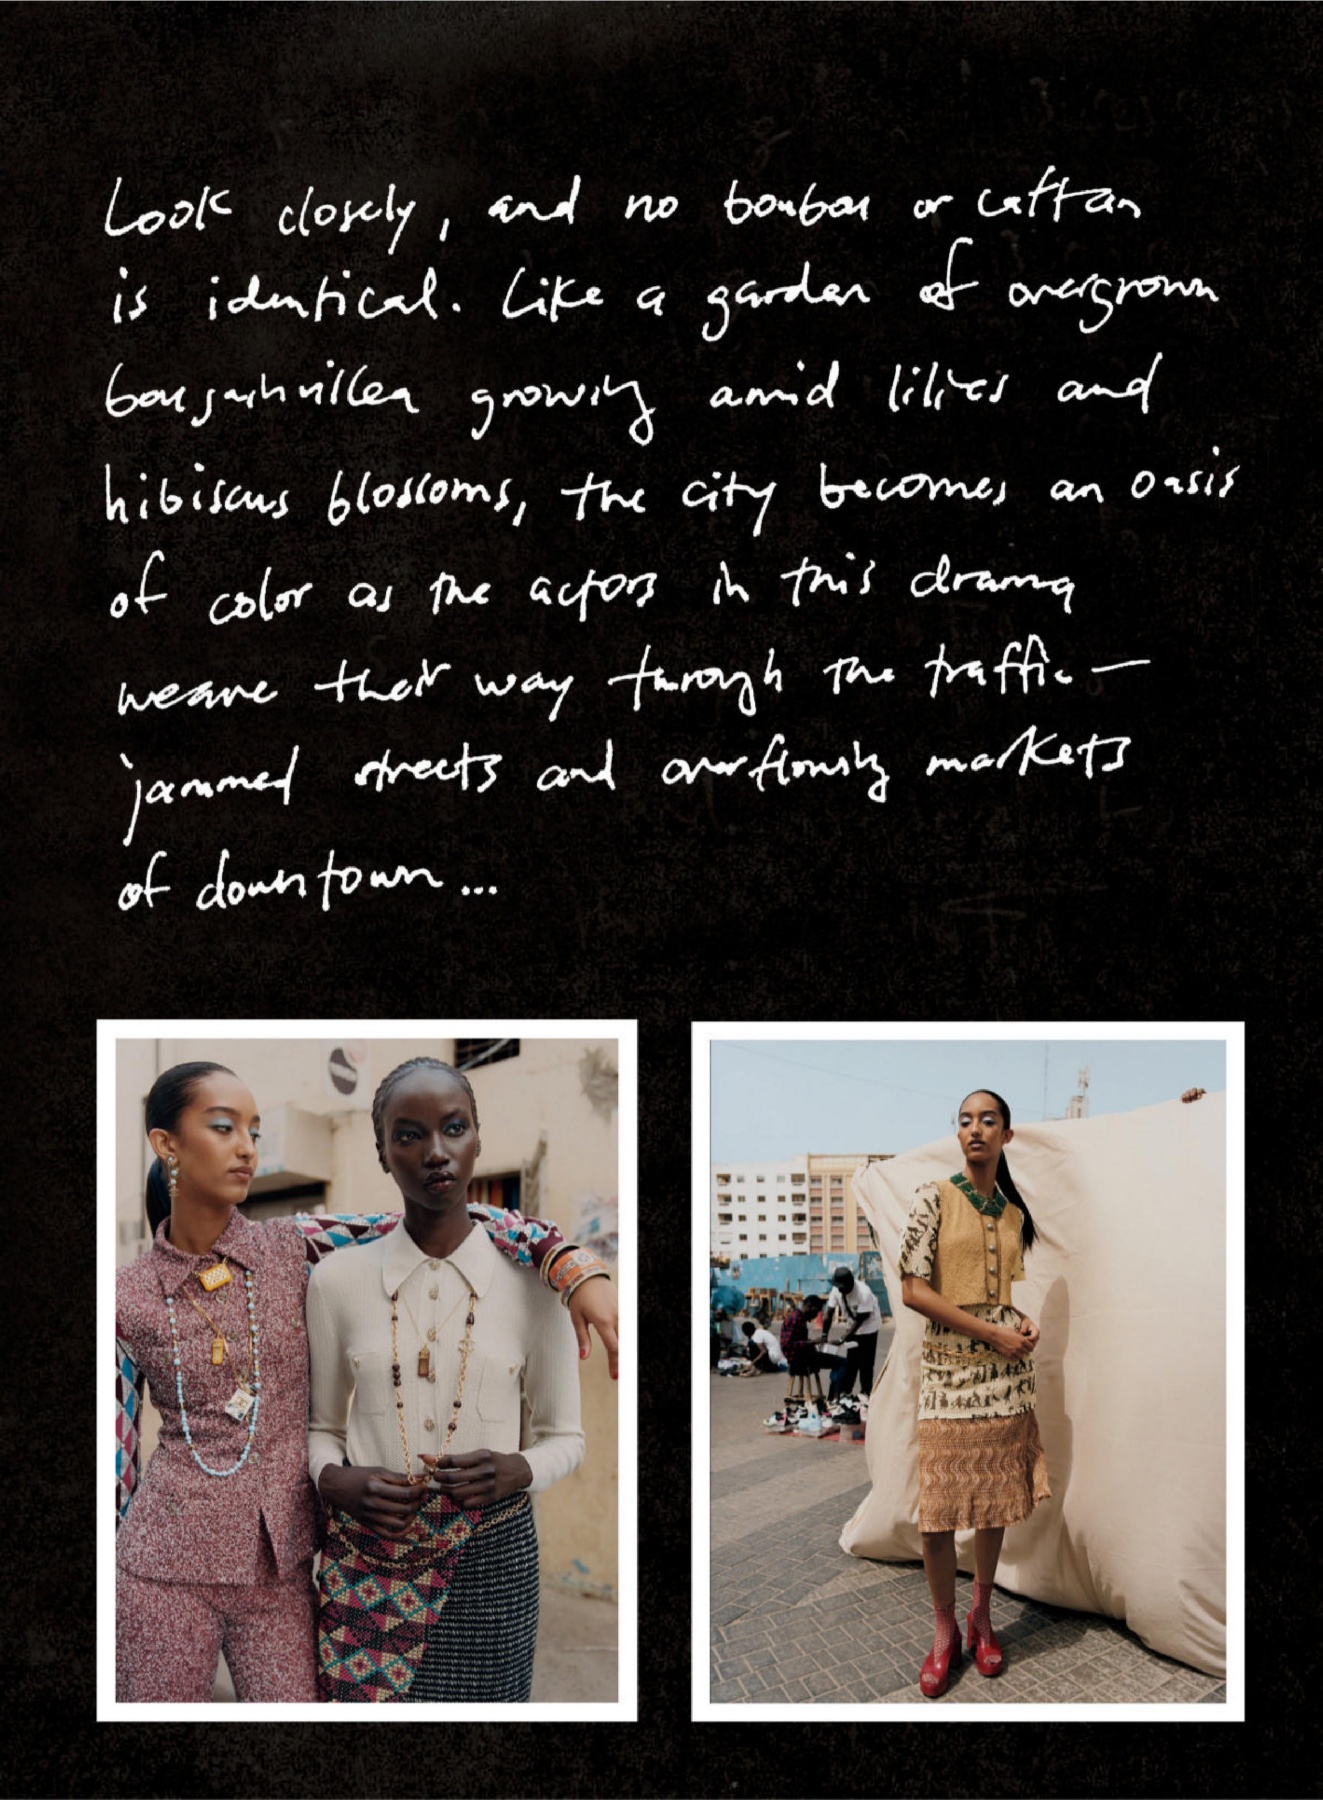 Look closely, and no boubou or caftan
is identical. Like a garden of overgrown
bougainvillea growing amid lilies and
hibiscus blossoms, the city becomes an oasis
of color as the actors in this drama
weave their way through the traffic—
jammed streets and overflowing markets
of downtown...